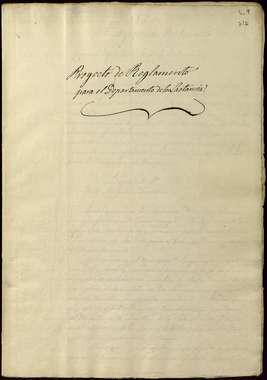 Proyecto de Reglamento
para el Departamento de la Lactancia